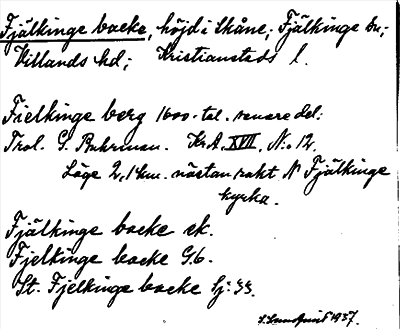 Fjälkinge backe, höjd i Skåne, Fjälkinge sn;
Villands hd; Kristianstads l.
Fielkinge berg 1600-tal. senare del:
Trol. G. Ruhrman. KrA. XVII, N:o 12.
Läge 2,1 km. nästan rakt N Fjälkinge
kyrka.
Fjälkinge backe ek.
Fjelkinge backe G.6.
St. Fjelkinge backe Sj: 33.
S. Lundquist 1937.